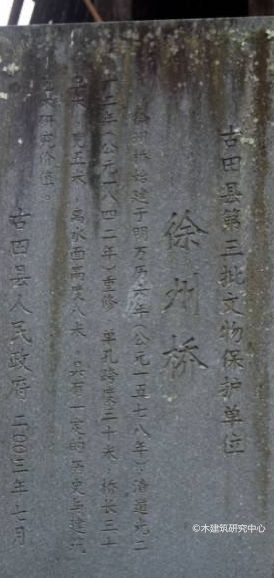 古田县第三批文物保护单位
徐州桥
徐州桥始建于明万历六年(公元一五七八年),清道光二
十二年(公元一八四二年)重修,单孔跨度三十米,桥长三十
米,宽五米,离水面高度八米,具有一定的历史与建筑
研究价值。
古田县人民政府 二〇〇三年七月
©木建筑研究中心